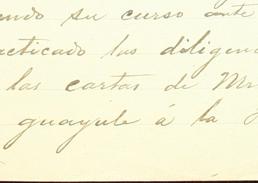 endo su curso ante
acticado las diligen
las cartas de Mr
guayule á la